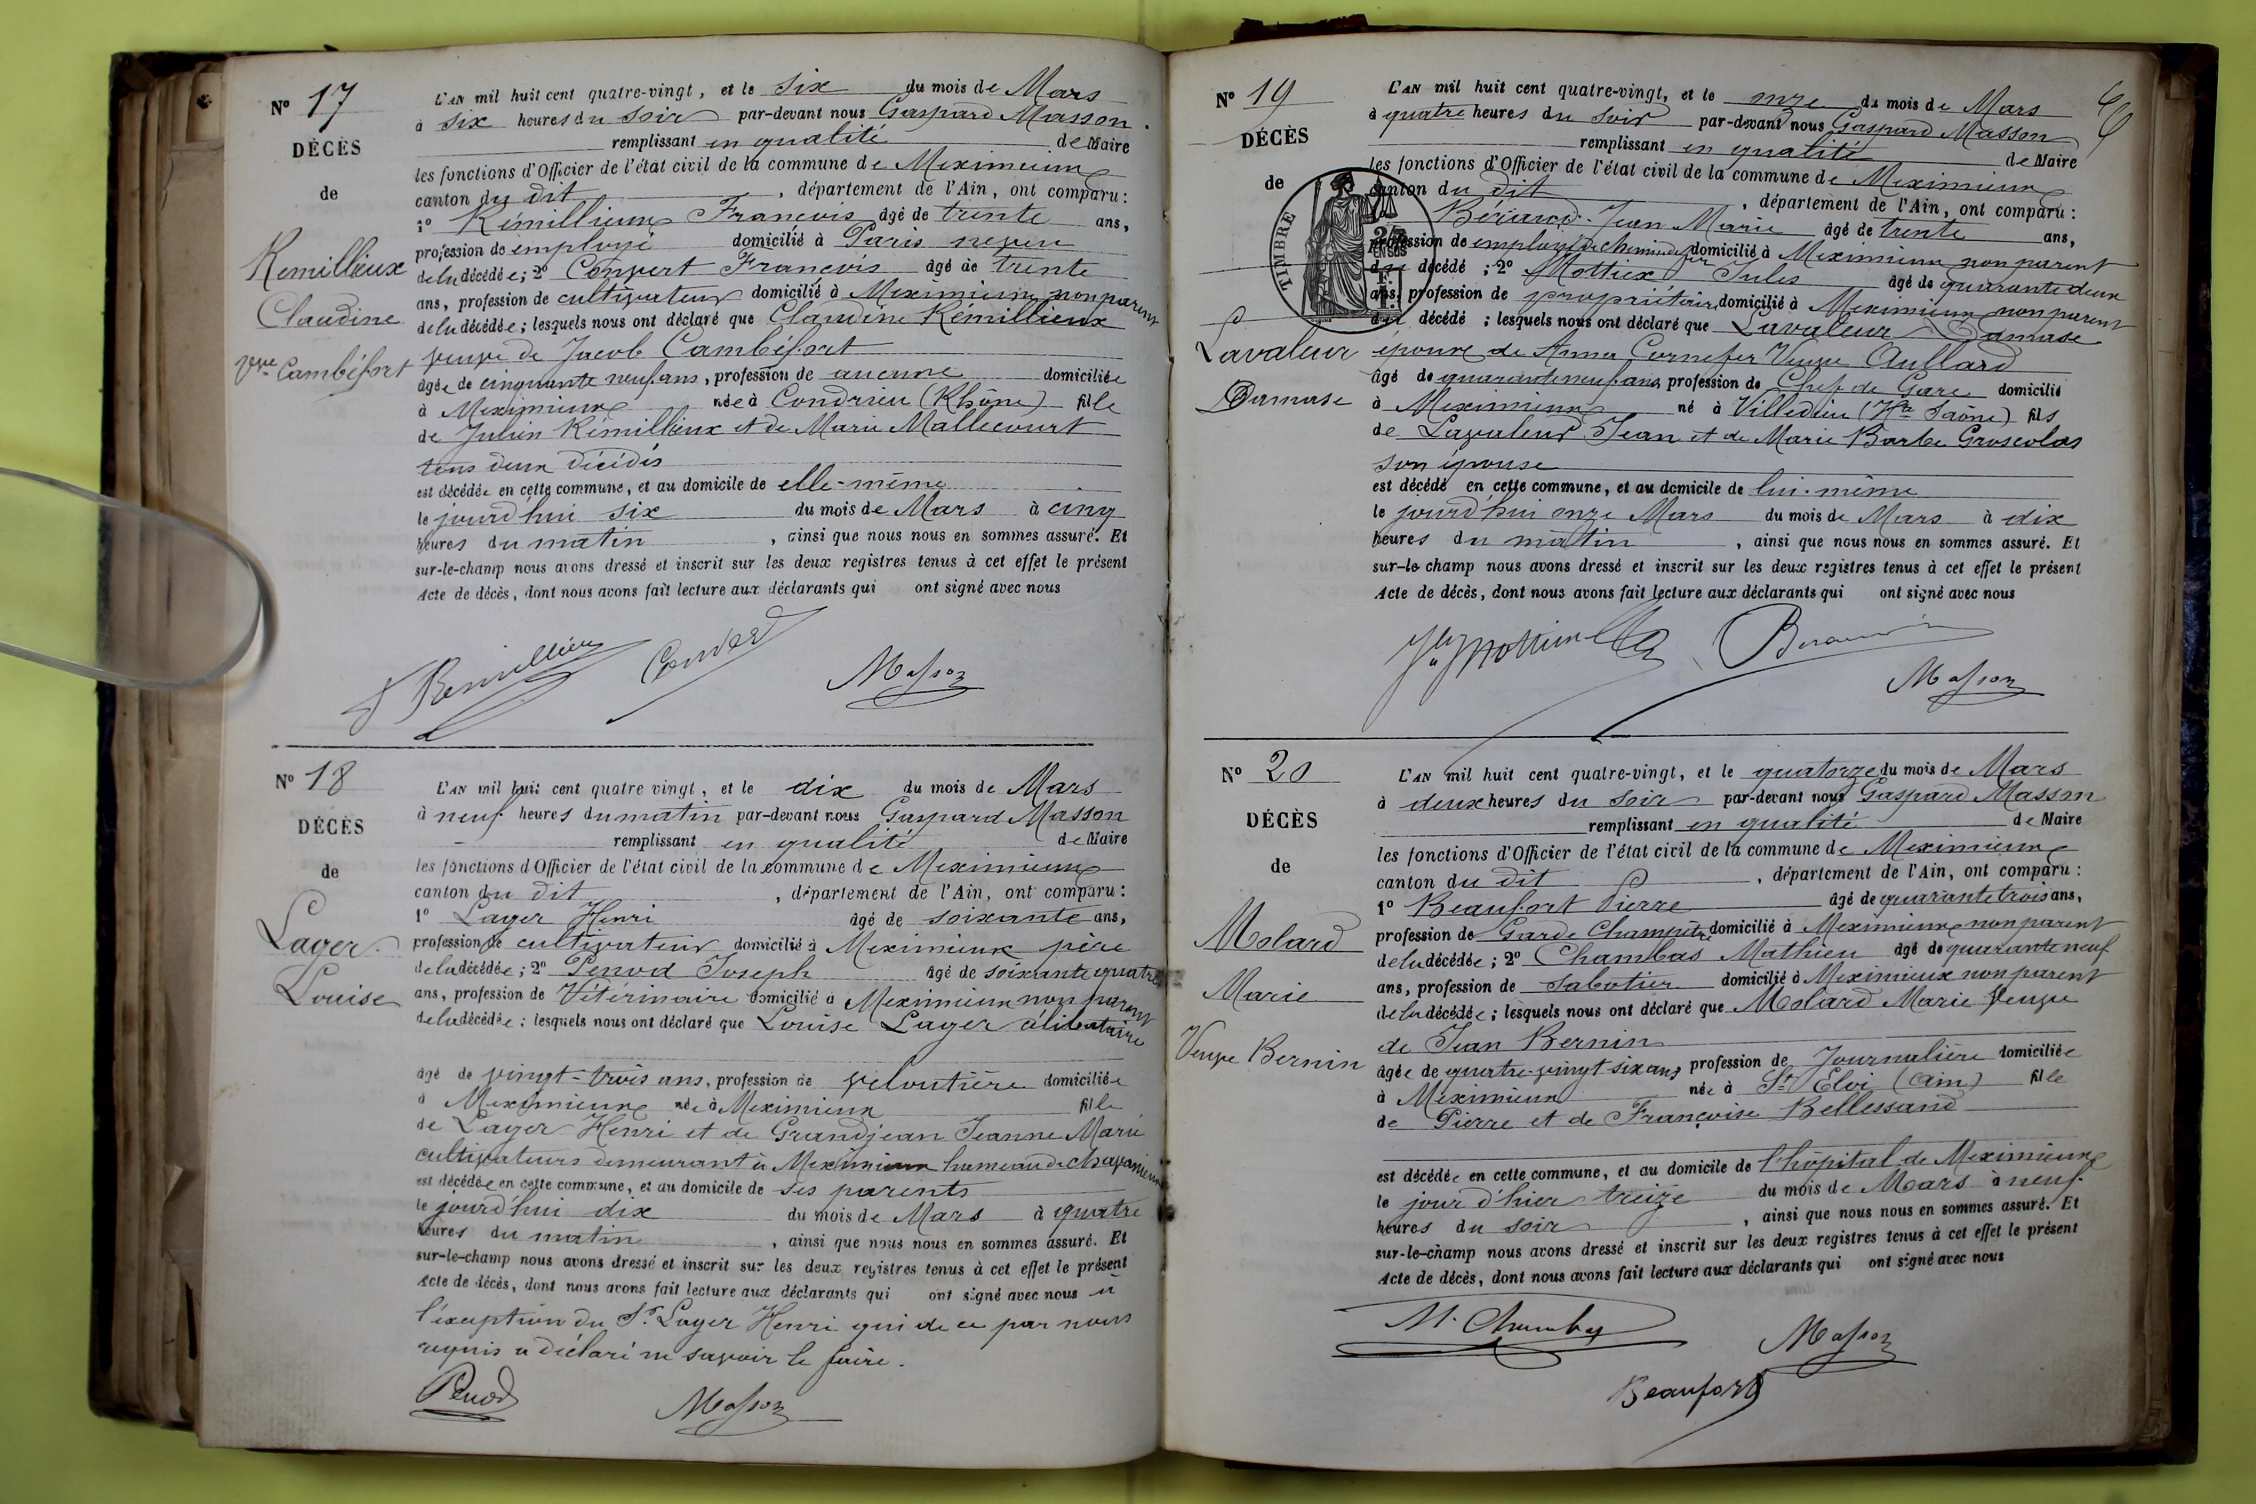 N° 17
DÉCÈS
de
Remillieux
Claudine
Vve Cambéfort
L'AN mil huit cent quatre-vingt, et le six du mois de Mars
à six heures du soir par-devant nous Gaspard Masson
remplissant en qualité de Maire
les fonctions d'Officier de l'état civil de la commune de Meximieux
canton du dit, département de l'Ain, ont comparu:
1° Rémillieux François âgé de trente ans,
profession de employé domicilié à Paris neveu
de la décédée; 2° Convert François âgé de trente
ans, profession de cultivateur domicilié à Meximieux non parent
de la décédée; lesquels nous ont déclaré que Claudine Rémillieux
veuve de Jacob Cambéfort
âgée de cinquante neuf ans, profession de aucune domiciliée
à Meximieux née à Condrieu (Rhône) fille
de Julien Rémillieux et de Marie Mallecourt
tous deux décédés
est décédée en cette commune, et au domicile de elle-même
le jourd'hui six du mois de Mars à cinq
heures du matin, ainsi que nous nous en sommes assuré. Et
sur-le-champ nous avons dressé et inscrit sur les deux registres tenus à cet effet le présent
Acte de décès, dont nous avons fait lecture aux déclarants qui ont signé avec nous
Masson
N° 18
DÉCÈS
de
Layer
Louise
L'AN mil huit cent quatre vingt, et le dix du mois de Mars
à neuf heures du matin par-devant nous Gaspard Masson
remplissant en qualité de Maire
les fonctions d'Officier de l'état civil de la commune de Meximieux
canton du dit, département de l'Ain, ont comparu:
1° Layer Henri âgé de soixante ans,
profession de cultivateur domicilié à Meximieux père
de la décédée; 2° Penod Joseph âgé de soixante quatre
ans, profession de Vétérinaire domicilié à Meximieux non parent
de la décédée; lesquels nous ont déclaré que Louise Layer célibataire
âgé de vingt-trois ans, profession de veloutière domiciliée
à Meximieux née à Meximieux fille
de Layer Henri et de Grandjean Jeanne Marie
cultivateurs demeurant à Meximieux hameau de
est décédée en cette commune, et au domicile de ses parents
le jourd'hui dix du mois de Mars à quatre
heures du matin, ainsi que nous nous en sommes assuré. Et
sur-le-champ nous avons dressé et inscrit sur les deux registres tenus à cet effet le présent
Acte de décès, dont nous avons fait lecture aux déclarants qui ont signé avec nous à
l'exception du Sr. Layer Henri qui de ce par nous
requis a déclaré ne savoir le faire.
Penod
Masson
N° 19
DÉCÈS
de
TIMBRE
Lavaleur
Damase
L'AN mil huit cent quatre-vingt, et le onze du mois de Mars
à quatre heures du soir par-devant nous Gaspard Masson
remplissant en qualité de Maire
les fonctions d'Officier de l'état civil de la commune de Meximieux
canton du dit, département de l'Ain, ont comparu:
Béraud Jean Marie âgé de trente ans,
profession de employé de chemin de fer domicilié à Meximieux non parent
du décédé; 2° Mottiex Jules âgé de quarante deux
ans, profession de propriétaire domicilié à Meximieux non parent
du décédé; lesquels nous ont déclaré que Lavaleur Damase
époux de Anna Cornefer Veuve Aullard
âgé de quarante neuf ans, profession de Chef de Gare domicilié
à Meximieux né à Villedieu (Hte Saône) fils
de Lavaleur Jean et de Marie Barbe Groscolas
son épouse
est décédé en cette commune, et au domicile de lui-même
le jourd'hui onze Mars du mois de Mars à dix
heures du matin, ainsi que nous nous en sommes assuré. Et
sur-le-champ nous avons dressé et inscrit sur les deux registres tenus à cet effet le présent
Acte de décès, dont nous avons fait lecture aux déclarants qui ont signé avec nous
Masson
N° 20
DÉCÈS
de
Molard
Marie
Veuve Bernin
L'AN mil huit cent quatre-vingt, et le quatorze du mois de Mars
à deux heures du soir par-devant nous Gaspard Masson
remplissant en qualité de Maire
les fonctions d'Officier de l'état civil de la commune de Meximieux
canton du dit, département de l'Ain, ont comparu:
1° Beaufort Pierre âgé de quarante trois ans,
profession de Garde Champêtre domicilié à Meximieux non parent
de la décédée; 2° Chambas Mathieu âgé de quarante neuf
ans, profession de sabotier domicilié à Meximieux non parent
de la décédée; lesquels nous ont déclaré que Molard Marie Veuve
de Jean Bernin
âgée de quatre-vingt-six ans profession de Journalière domiciliée
à Meximieux née à St Eloi (Ain) fille
de Pierre et de Françoise Bellessand
est décédée en cette commune, et au domicile de l'hôpital de Meximieux
le jour d'hier treize du mois de Mars à neuf
heures du soir, ainsi que nous nous en sommes assuré. Et
sur-le-champ nous avons dressé et inscrit sur les deux registres tenus à cet effet le présent
Acte de décès, dont nous avons fait lecture aux déclarants qui ont signé avec nous
Masson
Beaufort